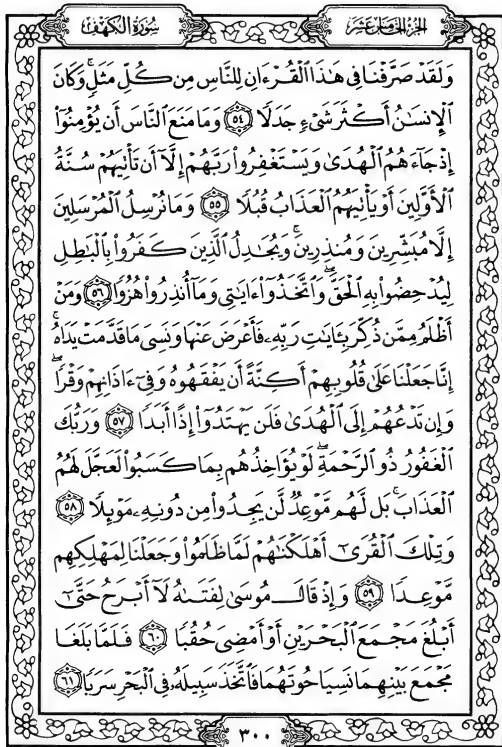 الجزء الخامس عشر
سورة الكهف
وَلَقَدْ صَرَّفْنَا فِي هَٰذَا ٱلْقُرْءَانِ لِلنَّاسِ مِن كُلِّ مَثَلٍۚ وَكَانَ
ٱلْإِنسَٰنُ أَكْثَرَ شَىْءٍ جَدَلًا ٥٤ وَمَا مَنَعَ ٱلنَّاسَ أَن يُؤْمِنُوٓا۟
إِذْ جَآءَهُمُ ٱلْهُدَىٰ وَيَسْتَغْفِرُوا۟ رَبَّهُمْ إِلَّآ أَن تَأْتِيَهُمْ سُنَّةُ
ٱلْأَوَّلِينَ أَوْ يَأْتِيَهُمُ ٱلْعَذَابُ قُبُلًا ٥٥ وَمَا نُرْسِلُ ٱلْمُرْسَلِينَ
إِلَّا مُبَشِّرِينَ وَمُنذِرِينَۚ وَيُجَٰدِلُ ٱلَّذِينَ كَفَرُوا۟ بِٱلْبَٰطِلِ
لِيُدْحِضُوا۟ بِهِ ٱلْحَقَّۖ وَٱتَّخَذُوٓا۟ ءَايَٰتِى وَمَآ أُنذِرُوا۟ هُزُوًا ٥٦ وَمَنْ
أَظْلَمُ مِمَّن ذُكِّرَ بِـَٔايَٰتِ رَبِّهِۦ فَأَعْرَضَ عَنْهَا وَنَسِىَ مَا قَدَّمَتْ يَدَاهُۚ
إِنَّا جَعَلْنَا عَلَىٰ قُلُوبِهِمْ أَكِنَّةً أَن يَفْقَهُوهُ وَفِىٓ ءَاذَانِهِمْ وَقْرًاۖ
وَإِن تَدْعُهُمْ إِلَى ٱلْهُدَىٰ فَلَن يَهْتَدُوٓا۟ إِذًا أَبَدًا ٥٧ وَرَبُّكَ
ٱلْغَفُورُ ذُو ٱلرَّحْمَةِۖ لَوْ يُؤَاخِذُهُم بِمَا كَسَبُوا۟ لَعَجَّلَ لَهُمُ
ٱلْعَذَابَۚ بَل لَّهُم مَّوْعِدٌ لَّن يَجِدُوا۟ مِن دُونِهِۦ مَوْئِلًا ٥٨
وَتِلْكَ ٱلْقُرَىٰٓ أَهْلَكْنَٰهُمْ لَمَّا ظَلَمُوا۟ وَجَعَلْنَا لِمَهْلِكِهِم
مَّوْعِدًا ٥٩ وَإِذْ قَالَ مُوسَىٰ لِفَتَىٰهُ لَآ أَبْرَحُ حَتَّىٰٓ
أَبْلُغَ مَجْمَعَ ٱلْبَحْرَيْنِ أَوْ أَمْضِىَ حُقُبًا ٦٠ فَلَمَّا بَلَغَا
مَجْمَعَ بَيْنِهِمَا نَسِيَا حُوتَهُمَا فَٱتَّخَذَ سَبِيلَهُۥ فِى ٱلْبَحْرِ سَرَبًا ٦١
٣٠٠